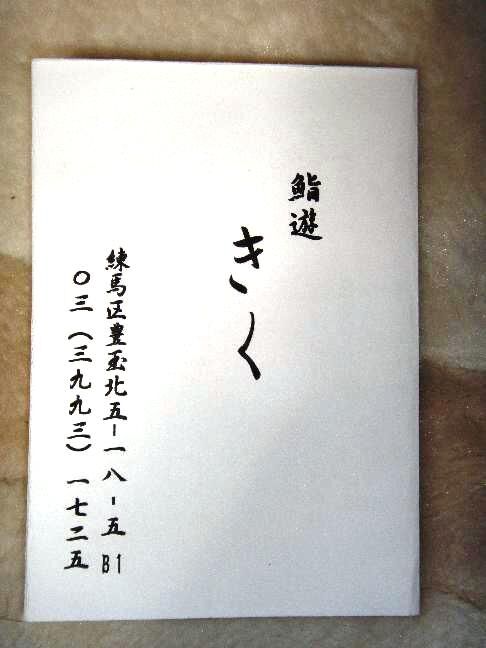 鮨遊
きく
練馬区豊玉北五-一八-五 B1
〇三(三九九三)一七二五